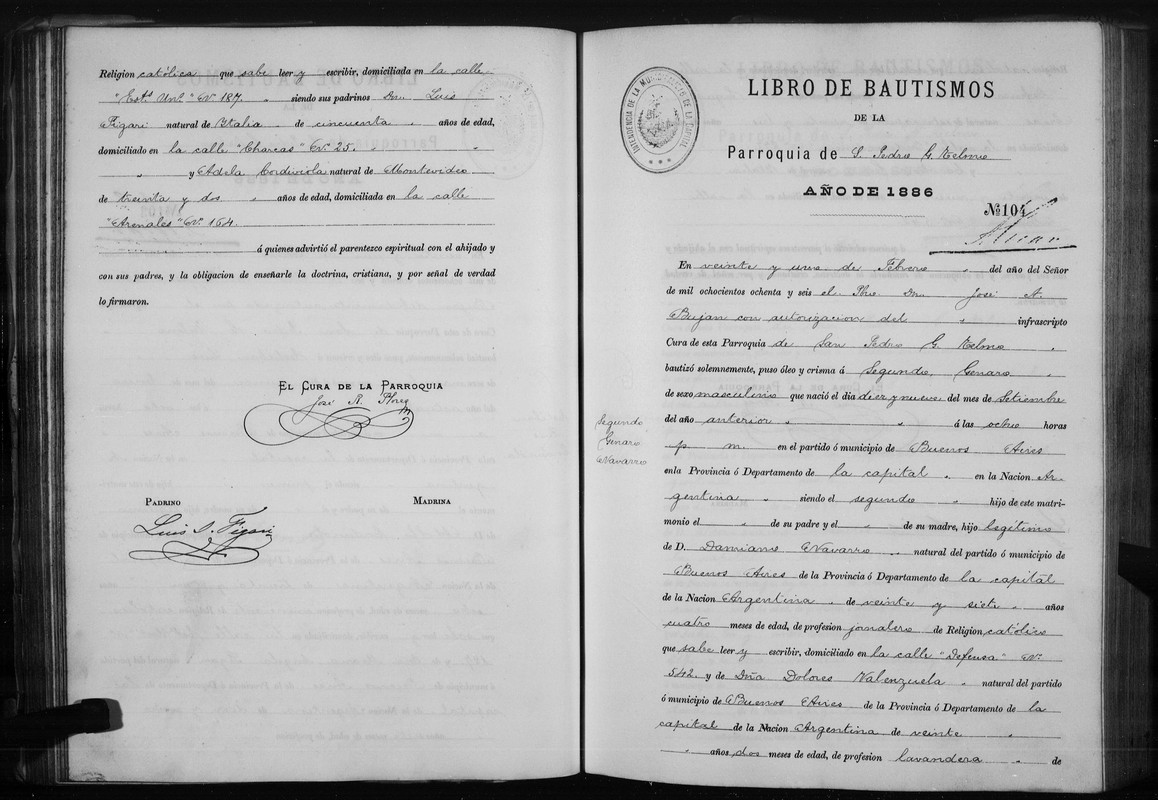 Religion católica que sabe leer y escribir, domiciliada en la calle
"Est.s Un.s" N.º 187. " siendo sus padrinos Dn. Luis
Figari natural de Italia de cincuenta años de edad,
domiciliado en la calle "Charcas" N.º 25. "
" y Adela Cordiviola natural de Montevideo
de treinta y dos " años de edad, domiciliada en la calle
"Arenales" N.º 164.
á quienes advirtió el parentezco espiritual con el ahijado y
con sus padres, y la obligacion de enseñarle la doctrina, cristiana, y por señal de verdad
lo firmaron.
EL CURA DE LA PARROQUIA
José R. Flores
PADRINO MADRINA
Luis A. Figari
INTENDENCIA DE LA MUNICIPALIDAD DE LA CAPITAL
LIBRO DE BAUTISMOS
DE LA
Parroquia de S. Pedro G. Telmo
AÑO DE 1886
Nº 104
Segundo
Genaro
Navarro
En veinte y uno de Febrero " del año del Señor
de mil ochocientos ochenta y seis el Pbro Dn. José A.
Bujan con autorizacion del " infrascripto
Cura de esta Parroquia de San Pedro G. Telmo
bautizó solemnemente, puso óleo y crisma á Segundo, Genaro
de sexo masculino que nació el dia diez y nueve del mes de Setiembre
del año anterior " " á las ocho horas
p. m. en el partido ó municipio de Buenos Aires
en la Provincia ó Departamento de la capital " en la Nacion Ar-
gentina " siendo el segundo " hijo de este matri-
monio el " de su padre y el " de su madre, hijo legítimo
de D. Damiano Navarro " natural del partido ó municipio de
Buenos Aires de la Provincia ó Departamento de la capital
de la Nacion Argentina " de veinte y siete " años
cuatro meses de edad, de profesion jornalero de Religion católico
que sabe leer y escribir, domiciliado en la calle "Defensa" N.º
542. y de Dña Dolores Valenzuela " natural del partido
ó municipio de Buenos Aires de la Provincia ó Departamento de la
capital de la Nacion Argentina de veinte "
" años dos meses de edad, de profesion lavandera " de